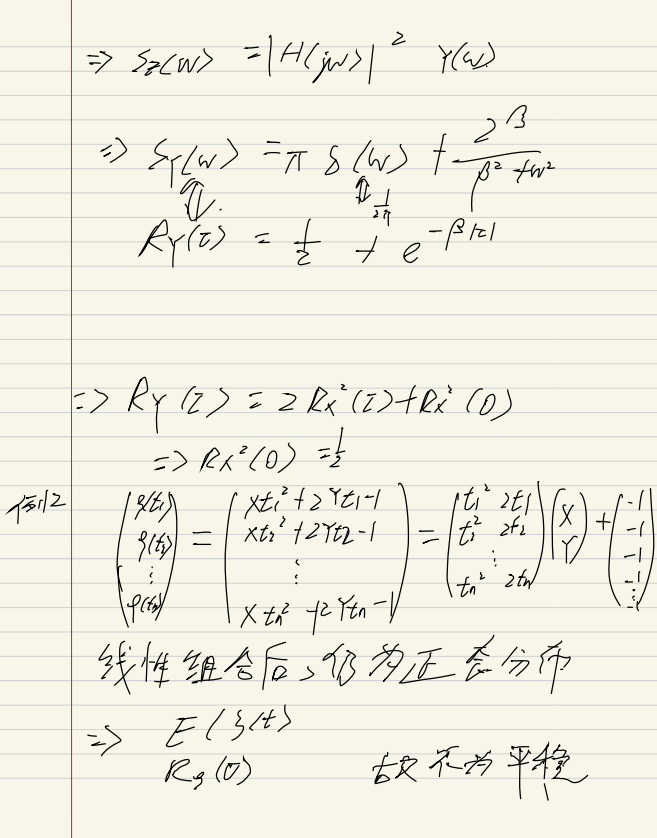 ⇒ S_Z(ω) = |H(jω)|² Y(ω)
⇒ S_Y(ω) = π δ(ω) + 2β/(β² + ω²)
⇕ ⇕ 1/2π
R_Y(τ) = 1/2 + e^{-β|τ|}
⇒ R_Y(τ) = 2 R_X²(τ) + R_X²(0)
⇒ R_X²(0) = 1/2
例12 (ξ(t₁) ξ(t₂) ⋮ ξ(tₙ)) = (Xt₁² + 2Yt₁ - 1 Xt₂² + 2Yt₂ - 1 ⋮ Xtₙ² + 2Ytₙ - 1) = (t₁² 2t₁ t₂² 2t₂ ⋮ tₙ² 2tₙ) (X Y) + (-1 -1 -1 -1 ⋮ -1)
线性组合后，仍为正态分布
⇒ E(ξ(t)
R_ξ(0) 故不为平稳